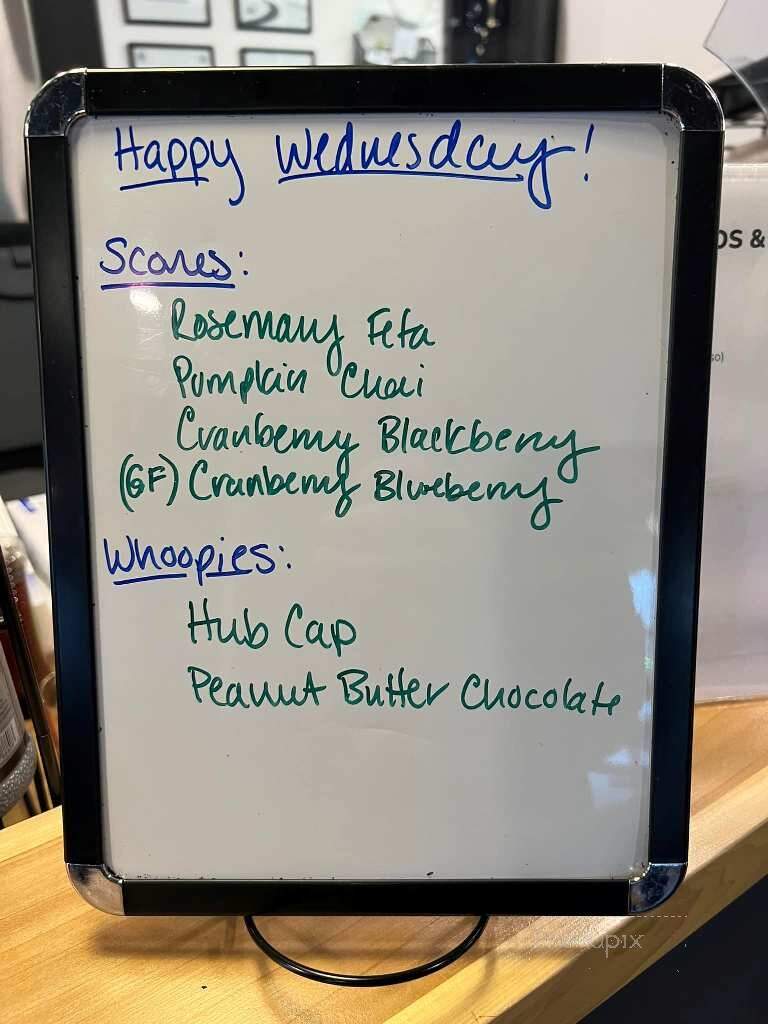 Happy Wednesday!
Scones:
Rosemary Feta
Pumpkin Chai
Cranberry Blackberry
(GF) Cranberry Blueberry
Whoopies:
Hub Cap
Peanut Butter Chocolate
OS &
so)